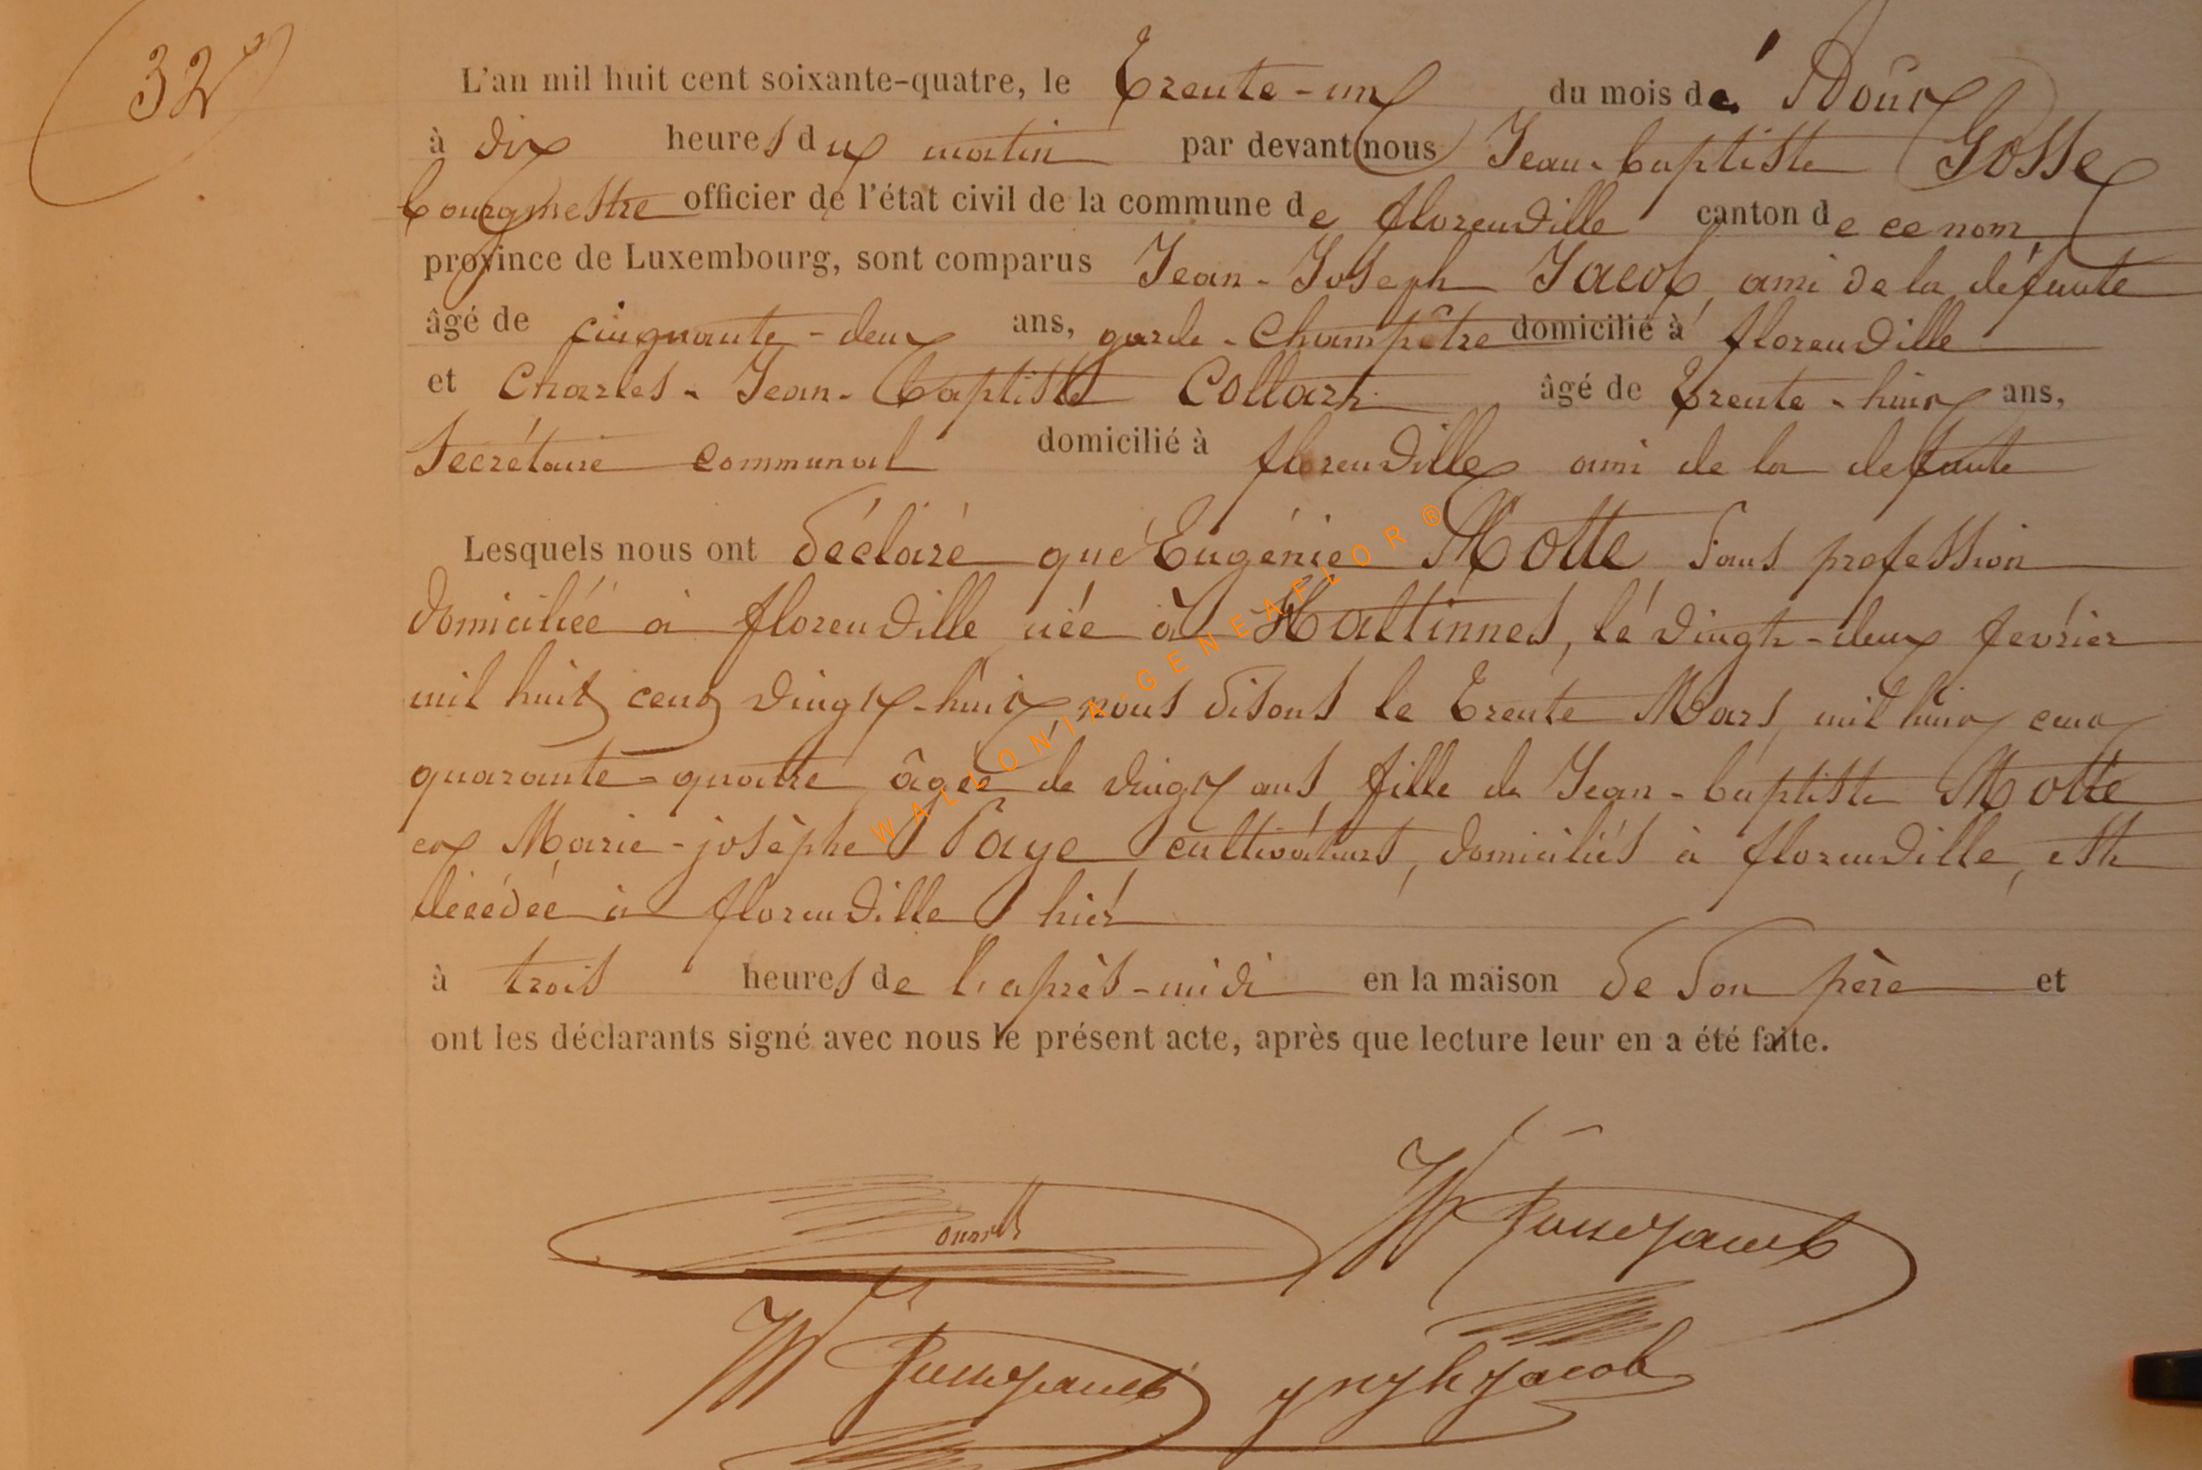 32
L'an mil huit cent soixante-quatre, le Trente-un du mois de Aout
à dix heures du matin par devant nous Jean-baptiste Gosse
bourgmestre officier de l'état civil de la commune de florenville canton de ce nom,
province de Luxembourg, sont comparus Jean-Joseph Jacob, ami de la défunte
âgé de cinquante-deux ans, garde-Champêtre domicilié à florenville
et Charles-Jean-Baptiste Collart âgé de Trente-huit ans,
Secrétaire communal domicilié à florenville ami de la defunte
Lesquels nous ont déclaré que Eugénie Motte sans profession
domiciliée à florenville née à Haltinnes, le vingt-deux fevrier
mil huit cent vingt-huit nous disons le Trente Mars mil huit cent
quarante-quatre, âgée de vingt ans, fille de Jean-baptiste Motte
et Marie-josèphe Paye, cultivateurs, domiciliés à florenville, est
décédée à florenville hier
à trois heures de l'après-midi en la maison de son père et
ont les déclarants signé avec nous le présent acte, après que lecture leur en a été faite.
WALLONIA-GENEAFLOR ®
Jacob